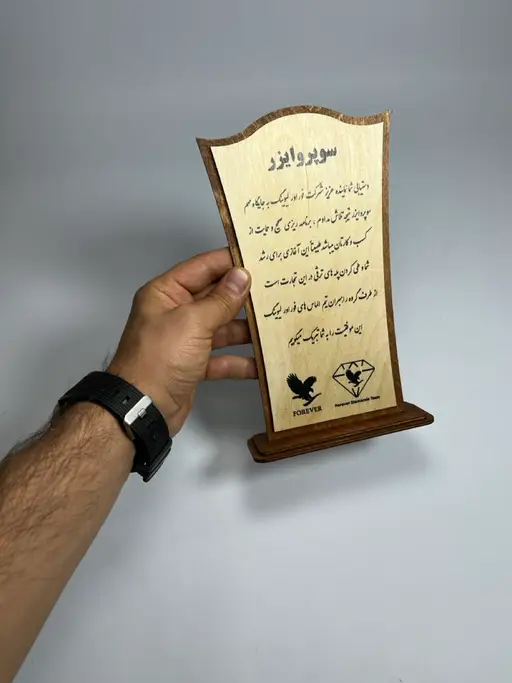 سوپروایزر
دستیابی شما نماینده عزیز شرکت فوراور لیوینگ به جایگاه مهم
سوپروایزر نتیجه تلاش مداوم ، برنامه ریزی صحیح و حمایت از
کسب و کارتان میباشد طبیعتاً این آغازی برای رشد
شما و طی کردن پله های ترقی در این تجارت است
از طرف گروه رهبران تیم الماس های فوراور لیوینگ
این موفقیت را به شما تبریک میگویم
FOREVER
Forever Diamonds Team